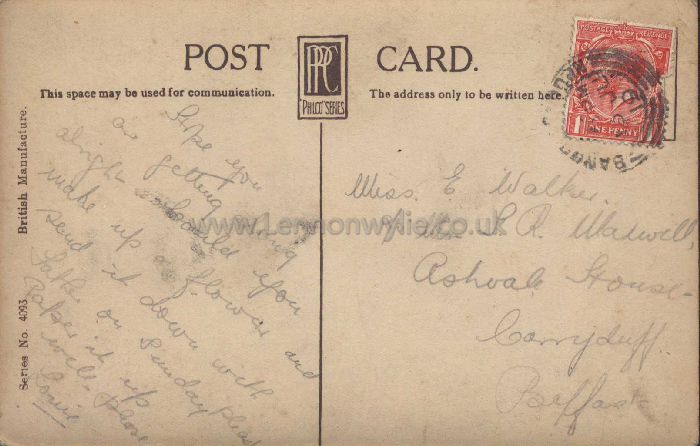 POST CARD.
PPC
"PHILCO" SERIES
This space may be used for communication.
The address only to be written here.
POSTAGE REVENUE
ONE PENNY
1
Series No. 4093
British Manufacture.
www.Lennonwylie.co.uk
Hope you
are getting along
alright should you
make up a flower and
send it down with
on Sunday please
it up
well please
Miss. E Walker.
S. R. Maxwell
Ashvale House
Carryduff
Belfast